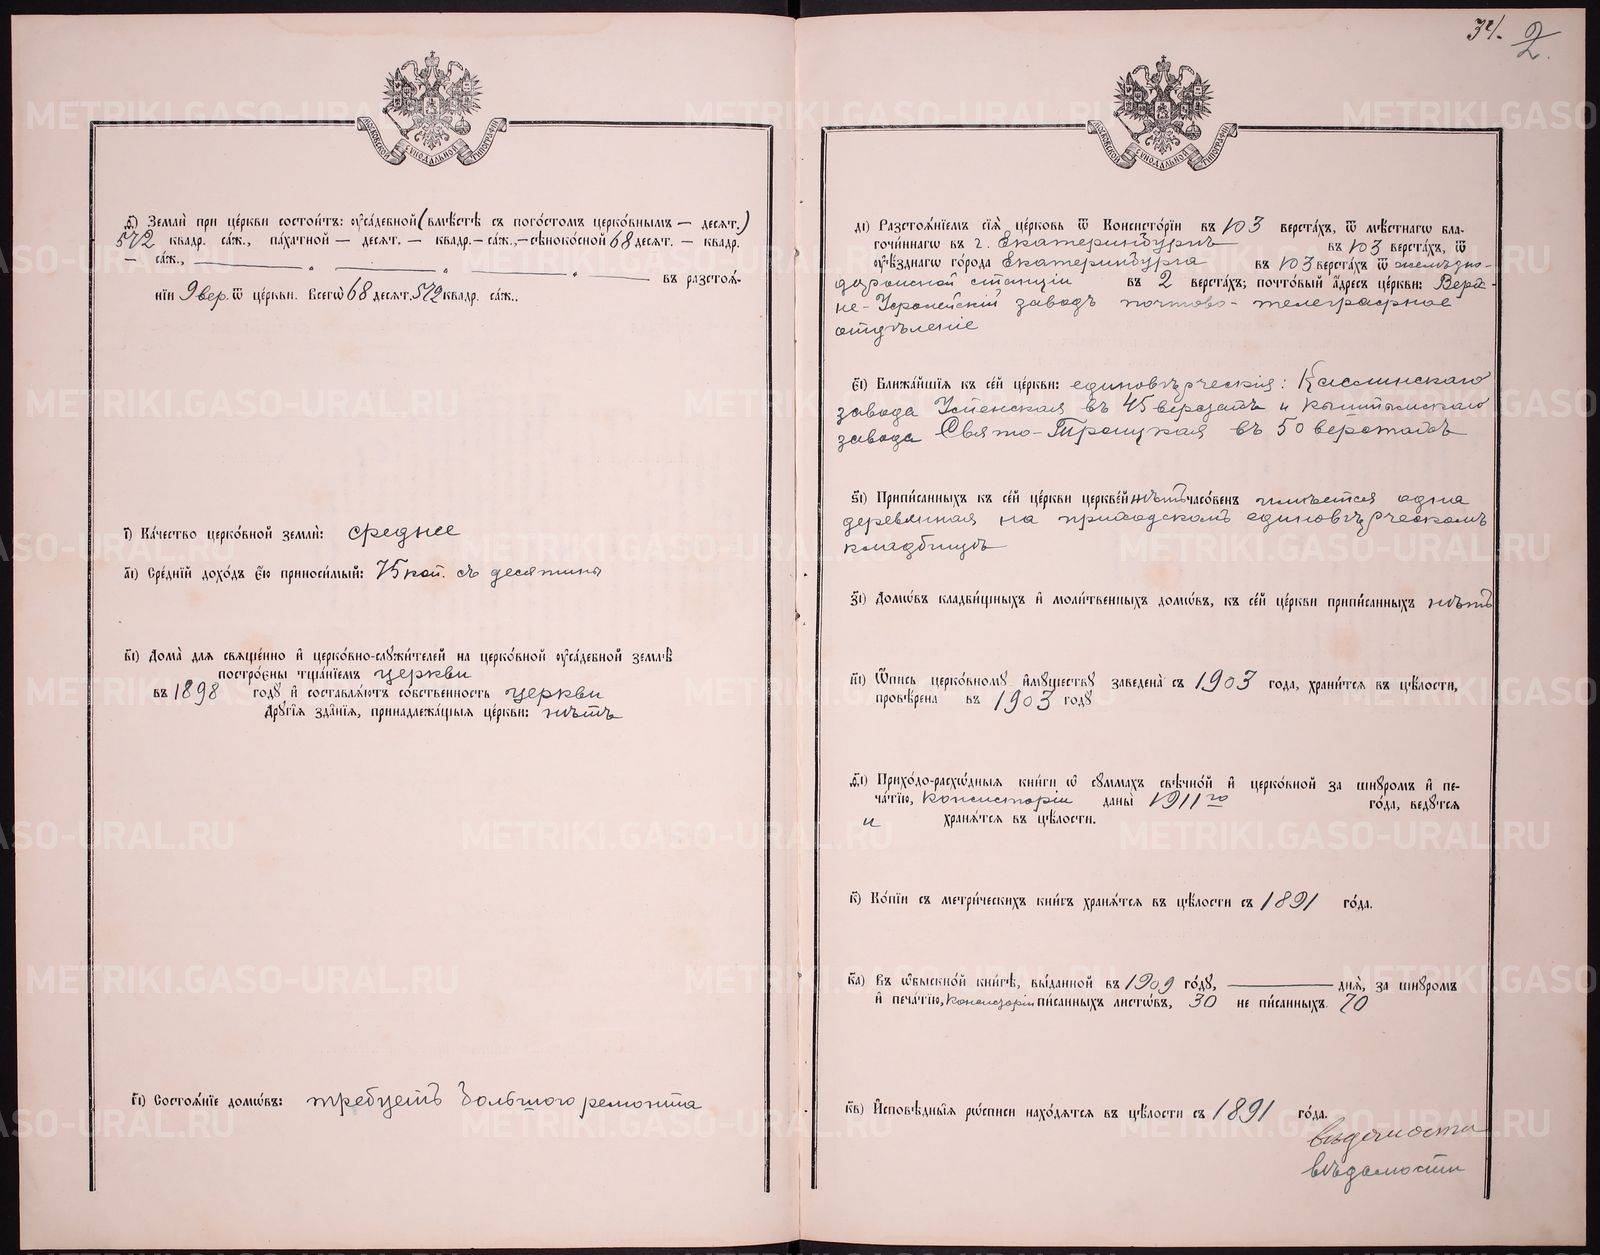 34. 2/2.
МОСКОВСКОЙ СѴНОДАЛЬНОЙ ТИПОГРАФІИ
ѳ҃) Землѝ при це́ркви состои́тъ: ᲂуса́дебной (вмѣ́стѣ съ пого́стомъ церко́внымъ — десѧт.)
572 квадр. са́ж., па́хатной — десѧт. — квадр. — са́ж., — сѣноко́сной 68 десѧт. — квадр.
— са́ж., въ разстоѧ́-
нїи 9 вер. ѿ це́ркви. Всегѡ̀ 68 десѧт. 572 квадр. са́ж..
і҃) Ка́чество церко́вной землѝ: среднее
а҃і) Сре́днїй дохо́дъ є҆́ю приноси́мый: 75 коп. съ десятины
в҃і) Дома̀ для свѧще́нно и҆ церко́вно-слꙋжи́телей на церко́вной ᲂуса́дебной землѣ̀
постро́ены тща́нїемъ церкви
въ 1898 годꙋ̀ и҆ составлѧ́ютъ со́бственность церкви
Дрꙋгі́ѧ зда́нїѧ, принадлежа́щыѧ це́ркви: нѣтъ
г҃і) Состоѧ́нїе домѡ́въ: требуетъ большого ремонта
МОСКОВСКОЙ СѴНОДАЛЬНОЙ ТИПОГРАФІИ
д҃і) Разстоѧ́нїемъ сїѧ̀ це́рковь ѿ Консисто́рїи въ 103 верста́хъ, ѿ мѣ́стнагѡ бла-
гочи́ннагѡ въ г. Екатеринбургѣ въ 103 верста́хъ, ѿ
ᲂуѣ́зднагѡ го́рода Екатеринбурга въ 103 верста́хъ ѿ желѣзно-
дорожной станціи въ 2 верста́хъ; почто́вый а҆́дресъ це́ркви: Верх-
не-Уфалейскій заводъ почтово-телеграфное
отдѣленіе
є҃і) Ближа́йшїѧ къ се́й це́ркви: единовѣрческія: Каслинскаго
завода Успенская въ 45 верстахъ и Кыштымскаго
завода Свято-Троицкая въ 50 верстахъ
ѕ҃і) Припи́санныхъ къ се́й це́ркви церкве́й нѣтъ часо́венъ имѣется одна
деревянная на приходскомъ единовѣрческомъ
кладбищѣ
з҃і) Домѡ́въ кладби́щныхъ и҆ моли́твенныхъ домѡ́въ, къ се́й це́ркви припи́санныхъ нѣтъ
и҃і) Ѻ҆́пись церко́вномꙋ и҆мꙋ́ществꙋ заведена̀ съ 1903 года, храни́тсѧ въ цѣ́лости,
провѣ́рена въ 1903 годꙋ̀
ѳ҃і) Прихо́до-расхо́дныѧ кни́ги ѡ҆ сꙋ́ммахъ свѣчно́й и҆ церко́вной за шнꙋро́мъ и҆ пе-
ча́тїю, Консисторіи даны̀ 1911 го го́да, ведꙋ́тсѧ
и хранѧ́тсѧ въ цѣ́лости.
к҃) Ко́пїи съ метри́ческихъ кни́гъ хранѧ́тсѧ въ цѣ́лости съ 1891 го́да.
к҃а) Въ ѡ҆́быскной кни́гѣ, вы́данной въ 1909 го́дꙋ, днѧ̀, за шнꙋро́мъ
и҆ печа́тїю, Консисторіи пи́санныхъ листѡ́въ, 30 не пи́санныхъ 70
к҃в) И҆сповѣ́дныѧ рѡ́списи нахо́дѧтсѧ въ цѣ́лости съ 1891 го́да.
вѣдомости
вѣдомости
METRIKI.GASO-URAL.RU